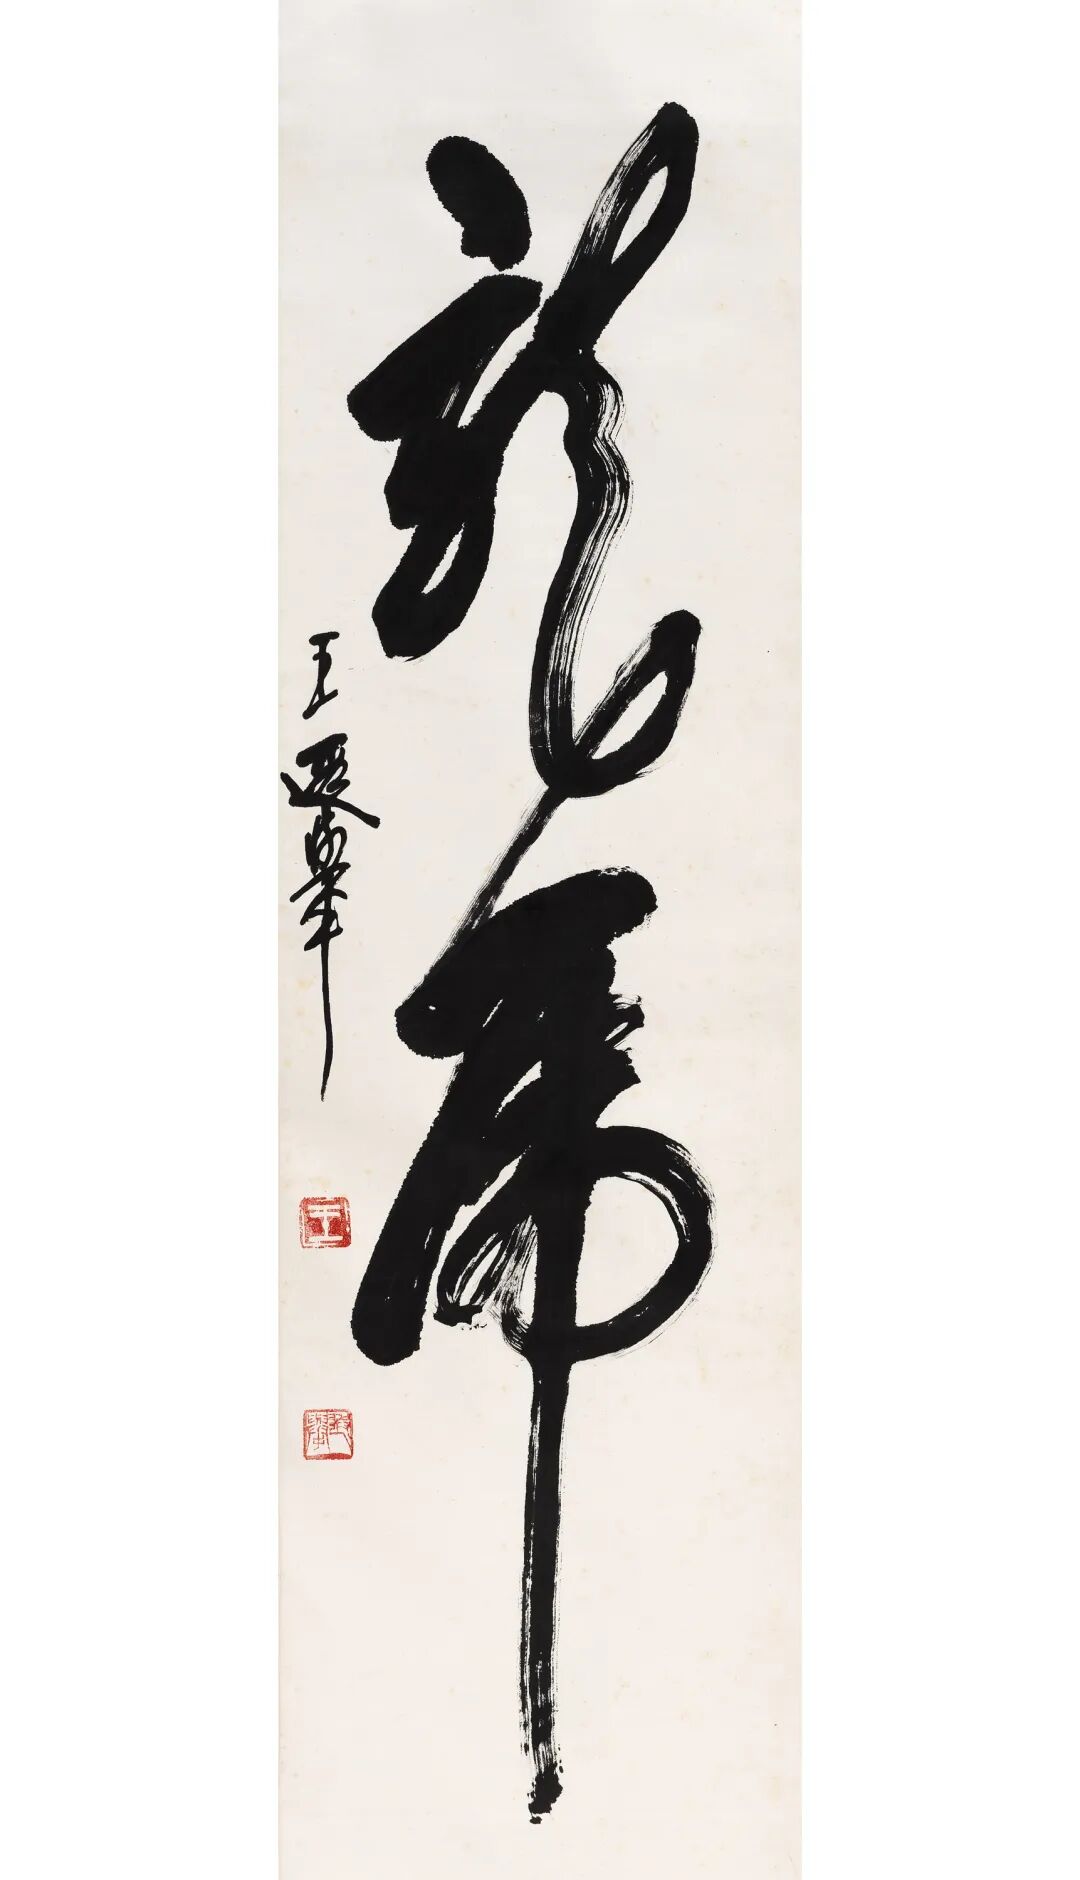 龍虎
王遐舉
王
遐舉